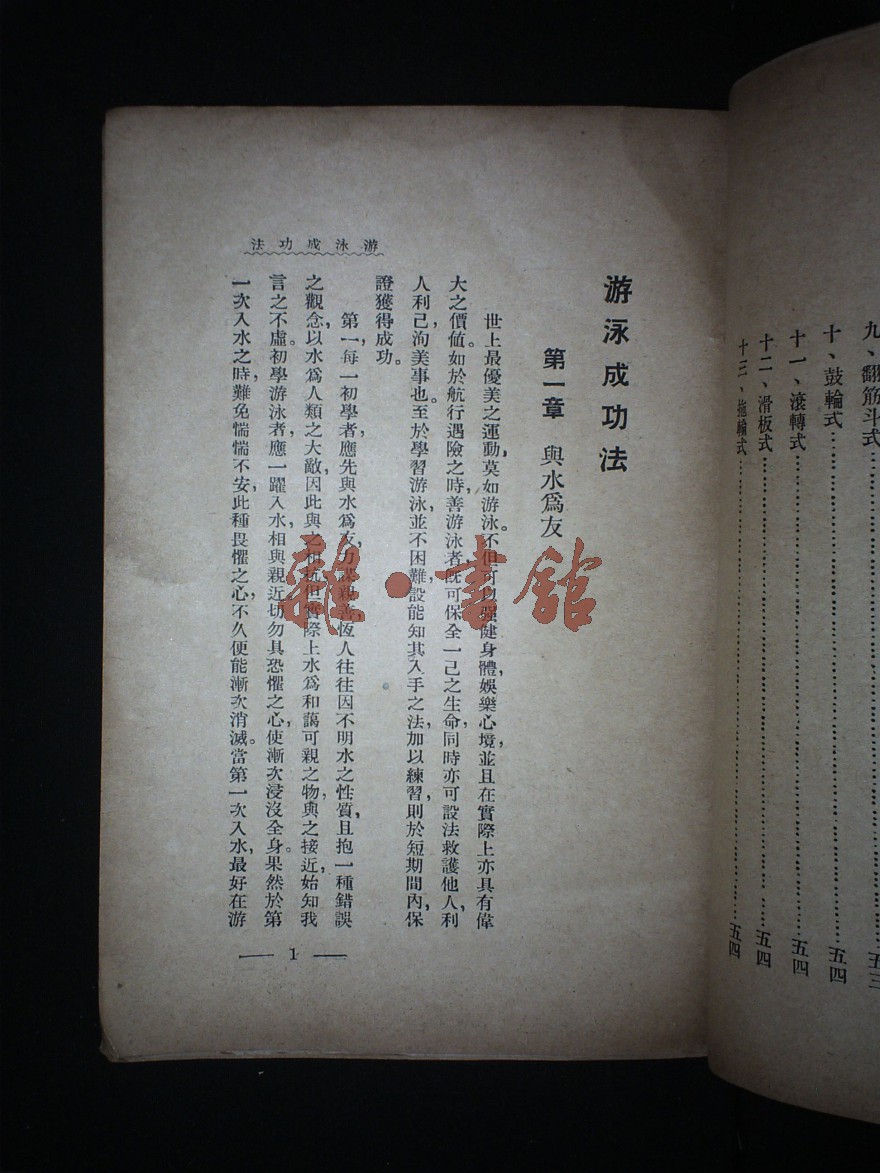 九、翻筋斗式……五三
十、鼓輪式……五四
十一、滾轉式……五四
十二、滑板式……五四
十三、拖輪式……五四
游泳成功法
游泳成功法
第一章 與水爲友
世上最優美之運動，莫如游泳。不但可以强健身體，娛樂心境，並且在實際上亦具有偉
大之價値。如於航行遇險之時，善游泳者旣可保全一己之生命，同時亦可設法救護他人，利
人利己，洵美事也。至於學習游泳，並不困難，設能知其入手之法，加以練習，則於短期間內，保
證獲得成功。
第一，每一初學者，應先與水爲友，力謀親善，恆人往往因不明水之性質，且抱一種錯誤
之觀念，以水爲人類之大敵，因此與之相抗，但實際上水爲和藹可親之物，與之接近，始知我
言之不虛。初學游泳者，應一躍入水，相與親近，切勿具恐懼之心，使漸次浸沒全身。果然於第
一次入水之時，難免惴惴不安，此種畏懼之心，不久便能漸次消滅。當第一次入水，最好在游
1
龍·書館